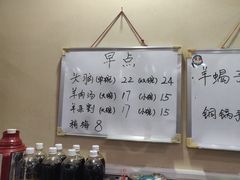 早点
头脑(单碗) 22 (双碗) 24
羊肉汤(大碗) 17 (小碗) 15
羊杂割(大碗) 17 (小碗) 15
稍梅 8
羊蝎子
铜锅